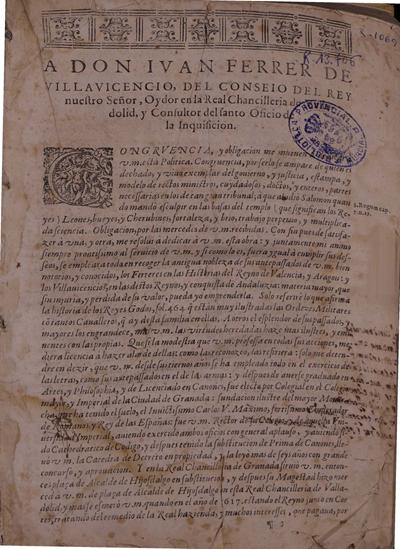 R 13.906
A DON IVAN FERRER DE
VILLAVICENCIO, DEL CONSEIO DEL REY
nuestro Señor, Oydor en la Real Chancilleria de
dolid, y Consultor del santo Oficio de
la Inquisicion.
CONGRVENCIA, y obligacion me mueuen
v.m. esta Politica. Congruencia, por serlo se ampare de quien es
dechado, y viuo exemplar del gouierno, y justicia, estampa, y
modelo de rectos ministros, cuydadosos, doctos, y enteros, partes
necessarias en los de tan gran tribunal; a que aludio Salomon quan
do mando esculpir en las basas del templo (que significan los Re-
3. Regum cap.
yes) Leones, bueyes, y Cherubines, fortaleza, y brio, trabajo perpetuo, y multiplica-
da sciencia. Obligacion, por las mercedes de v.m. recibidas. Con fin pues de satisfa-
zer a vna, y otra, me resoluí a dedicar a v.m. esta obra: y juntamente mi animo
siempre promtissimo al seruicio de v.m. y si como lo es, fuera ygual a cumplir sus des-
seos, se emplicara todo en recoger la antigua nobleza de sus antepassados de v.m. bien
notorios, y conocidos, los Ferreres en las Historias del Reyno de Valencia, y Aragon: y
los Villauicencios, en las destos Reynos, y conquista de Andaluzia: materia mayor, que
sin injuria, y perdida de su valor, pueda yo emprenderla. Solo referiré lo que afirma
la historia de los Reyes Godos, fol. 405. q̃ están muy ilustradas las Ordenes Militares
cõ tantos Caualleros, q̃ ay destas familias en ellas. Abrōs el esplendor de su passado, y
mayores los engrandece, mas v.m. las virtudes heredadas haze mas ilustres, y emi-
nentes con las propias. Que si la modestia que v.m. professa en todas sus acciones, me
diera licencia a hazer alarde dellas: como las reconozco, las refiriera: solo me atendre
en dezir, que v.m. desde sus tiernos años se ha empleado todo en el exercicio de
las letras, como sus antepassados en el de las armas: y despues de auerse graduado en
Artes, y Philosophia, y de Licenciado en Canones, fue electo por Colegial en el Colegio
mayor, y Imperial de la Ciudad de Granada: fundacion ilustre del mayor Monarcha
que ha tenido el suelo, el Inuictissimo Carlos V. Maximo, fortissimo Emperador
de Romanos, y Rey de las Españas: fue v.m. Rector de su Colegio, y de aquella Vni-
uersidad Imperial, auiendo exercido ambos oficios con general aplauso, y auiendo si-
do Cathedratico de Codigo, y despues tenido la substitucion de Prima de Canones, lle-
uò v.m. la Catedra de Decreto en propiedad, y la leyo mas de seys años con grande
concurso, y aprouacion. Y en la Real Chancilleria de Granada siruio v.m. enton-
ces plaza de Alcalde de Hijosdalgo en substitucion, y despues su Magestad hizo mer
ced a v.m. de plaza de Alcalde de Hijosdalgo en esta Real Chancilleria de Vallado-
lid, y mas se esmerò v.m. quando en el año de 1617. estando el Reyno junto en Cor-
tes, tratando del remedio de la Real hazienda, y muchos interesses, que pagaua, por